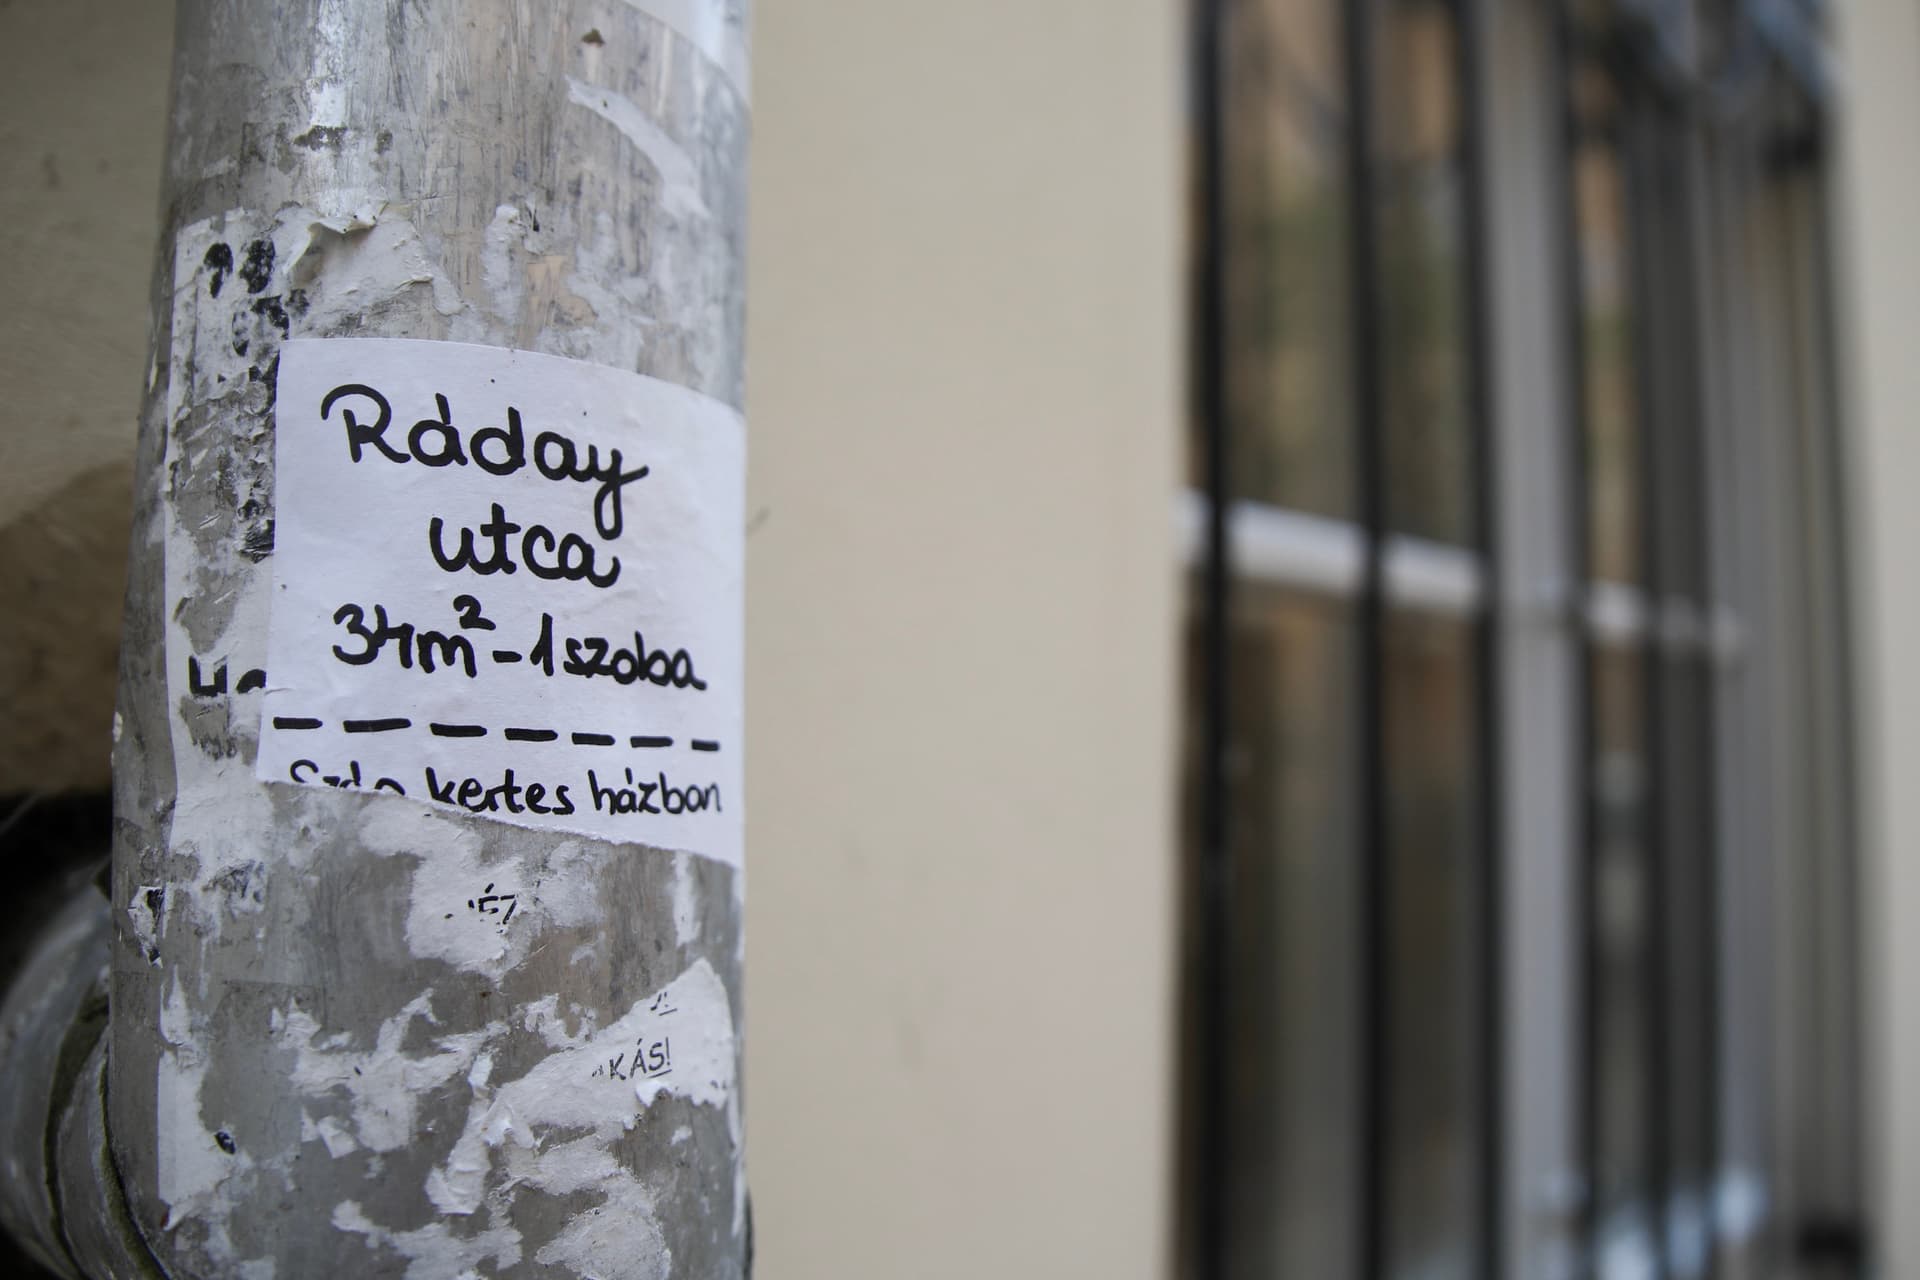 Ráday
utca
34m² - 1 szoba
kertes házban
KÁS!